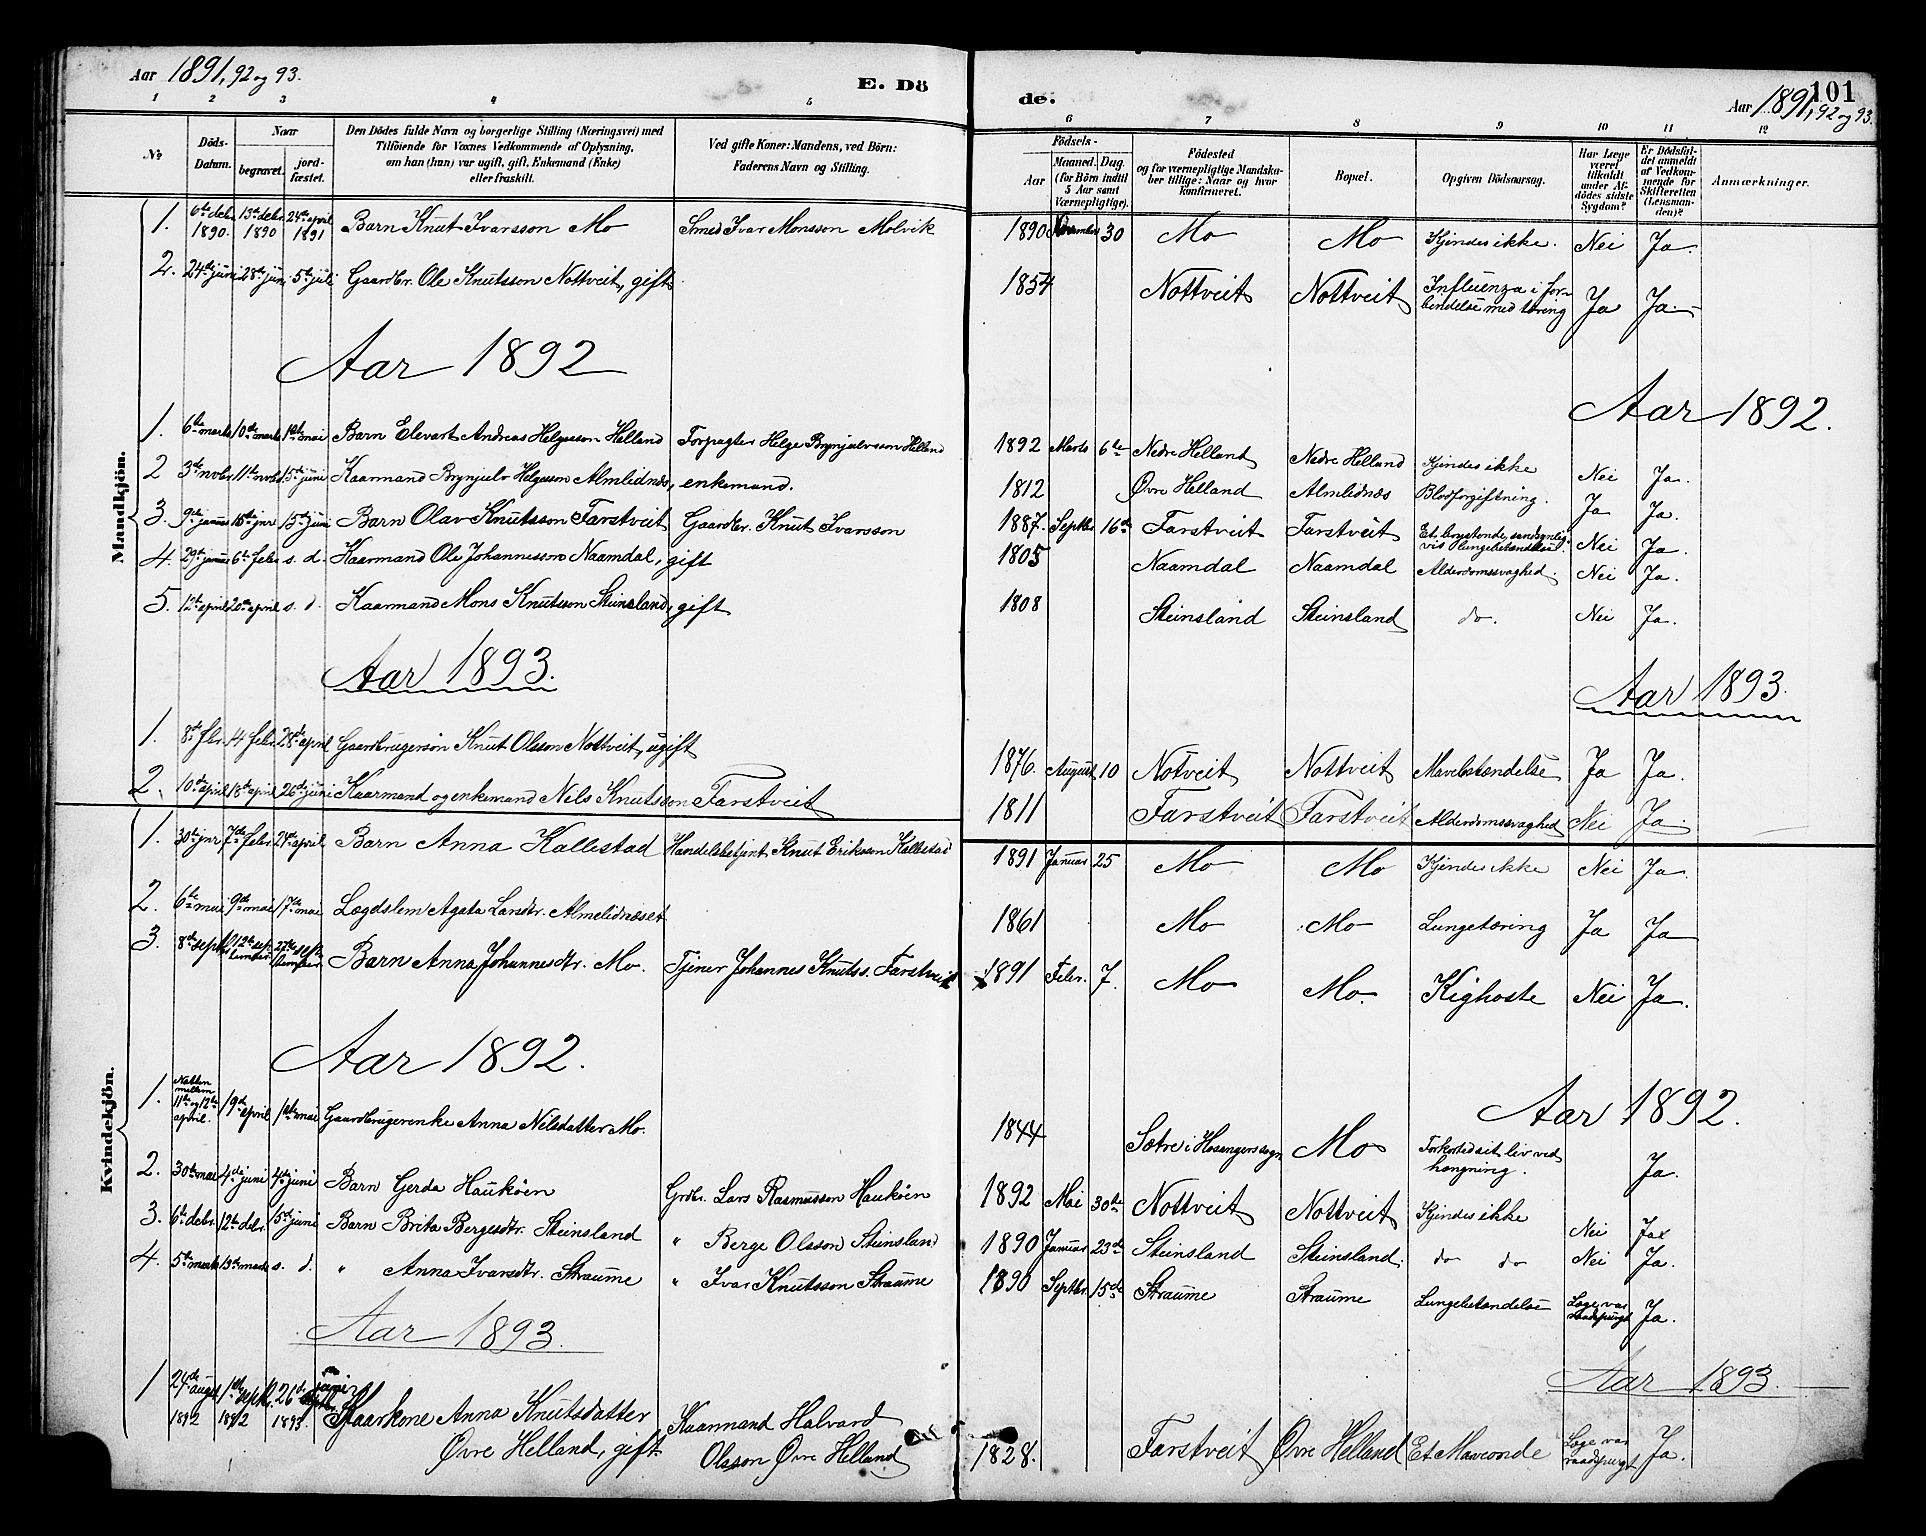 Aar 1891, 92 og 93.
E. Dö
de.
Aar 1891, 92 og 93.
101
1 2 3 4 5
6 7 8 9 10 11 12
No
Döds-Datum.
Naar
begravet.
jord-fæstet.
Den Dödes fulde Navn og borgerlige Stilling (Næringsvei) med
Tilföiende for Voxnes Vedkommende af Oplysning,
om han (hun) var ugift, gift, Enkemand (Enke)
eller fraskilt.
Ved gifte Koner: Mandens, ved Börn:
Faderens Navn og Stilling.
Födsels-
Aar
Maaned. Dag.
(for Börn indtil
5 Aar samt
Værnepligtige).
Födested
og for værnepligtige Mandskaber tillige: Naar og hvor
konfirmeret.
Bopæl.
Opgiven Dödsaarsag.
Har Læge
været
tilkaldt
under Afdödes sidste
Sygdom?
Er Dödsfaldet anmeldt
af Vedkommende for
Skifteretten
(Lensmanden)?
Anmærkninger.
Mandkjön.
1. 6te debr. 1890. 13de debr. 1890 24de april 1891 Barn Knut Ivarsson Mo Smed Ivar Monsson Molvik 1890 30 Mo Mo Kjendes ikke. Nei Ja.
2. 24de juni 28de juni 5te juli Gaardbr. Ole Knutsson Nottveit, gift 1854 Nottveit Nottveit Influenza i forbindelse med tæring Ja Ja.
Aar 1892
Aar 1892.
1. 6te marts 10de marts 1ste mai Barn Elevart Andreas Helgesson Helland Forpagter Helge Brynjulvsson Helland 1892 Marts 6te Nedre Helland Nedre Helland Kjendes ikke Nei Ja.
2 3de novbr. 11te novbr. 15de juni Kaarmand Brynjulv Helgesson Almlidnæs, enkemand. 1812 Øvre Helland Almlidnæs Blodforgiftning. Ja Ja.
3. 9de januar 15de jnr. 15de juni Barn Olav Knutsson Farstveit Gaardbr. Knut Ivarsson 1887. Septbr. 16de Farstveit Farstveit Et brystonde, sandsynligvis lungebetændelse. Nei Ja.
4. 29de januar 6te febr. s. d. Kaarmand Ole Johannesson Naamdal, gift 1805 Naamdal Naamdal Alderdomssvaghed. Nei Ja.
5. 12te april 20de april s. d. Kaarmand Mons Knutsson Steinsland, gift 1808 Steinsland Steinsland do. Nei Ja.
Aar 1893.
Aar 1893.
1. 8de fbr. 14 febr. 28de april Gaardbrugersøn Knut Olsson Nottveit, ugift 1876. August 10 Notveit Nottveit Mavebetændelse Ja Ja.
2. 10de april 18de april 26de juni Kaarmand og enkemand Nils Knutsson Farstveit 1811 Farstveit Farstveit Alderdomssvaghed Nei Ja.
Kvindekjön.
1. 30te jnr. 7de febr. 24de april Barn Anna Kallestad Handelsbetjent Knut Eriksson Kallestad 1891 Januar 25 Mo Mo Kjendes ikke Nei Ja.
2. 6te mai 9de mai 17de mai Lægdslem Agata Larsdtr. Almelidnæset 1861 Mo Mo Lungetæring Ja Ja
3. 8de septbr. 12te september 27de september Barn Anna Johannesdtr. Mo. Tjener Johannes Knutss. Farstveit 1891 Febr. 7. Mo Mo. Kighoste Nei Ja.
Aar 1892.
Aar 1892.
1. Natten mellem 11te og 12te april. 19de april 1ste mai Gaardbrugerenke Anna Nilsdatter Mo. 1844 Sætre i Hosangersogn Mo Forkortede sit liv ved hængning. Ja.
2. 30te mai 4de juni 4de juni Barn Gerda Haukøen Grdbr. Lars Rasmusson Haukøen 1892 Mai 30te Nottveit Nottveit Kjendes ikke Nei Ja
3. 6te debr. 12te debr. 15de juni Barn Brita Bergesdtr. Steinsland " Berge Olsson Steinsland 1890 Januar 23de Steinsland Steinsland. do do Nei Ja.
4. 5te marts 13de marts s. d. " Anna Ivarsdtr. Straume " Ivar Knutsson Straume 1890 Septbr. 15de Straume Straume Lungebetændelse Læge var raadspurgt Ja.
Aar 1893.
Aar 1893.
1 24de august 1892 1ste septbr. 1892 26de juni 1893 Kaarkone Anna Knutsdatter Kaarmand Halvard
Øvre Helland, gift Olsson Øvre Helland 1828. Farstveit Øvre Helland Et Maveonde Læge var raadspurgt Ja.